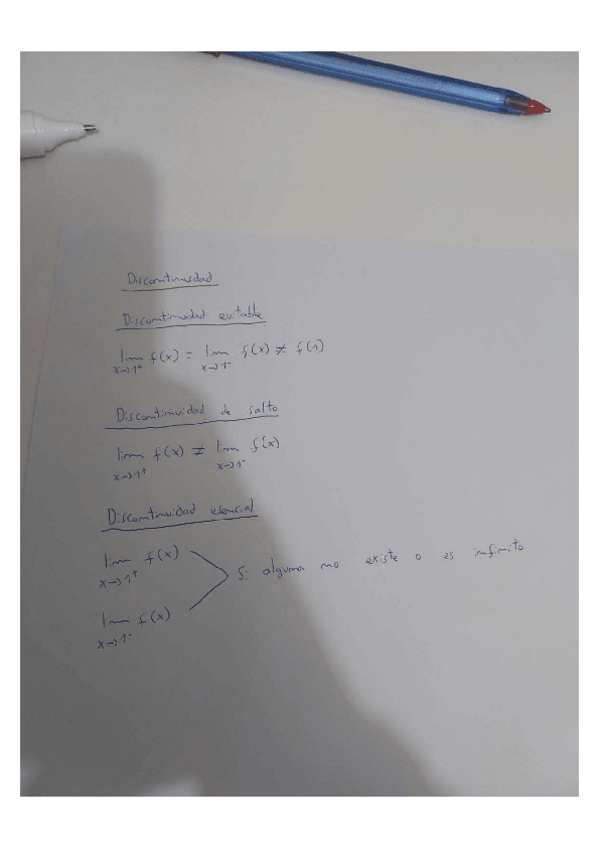 Discontinuidad
Discontinuidad evitable
lim f(x) = lim f(x) ≠ f(1)
x→1⁺ x→1⁻
Discontinuidad de salto
lim f(x) ≠ lim f(x)
x→1⁺ x→1⁻
Discontinuidad esencial
lim f(x)
x→1⁺
Si alguna no existe o es infinito
lim f(x)
x→1⁻